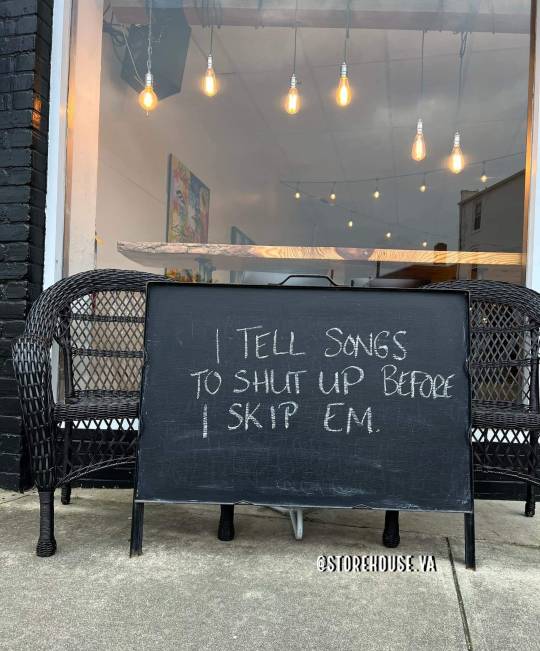 I TELL SONGS
TO SHUT UP BEFORE
I SKIP EM.
@STOREHOUSE.VA